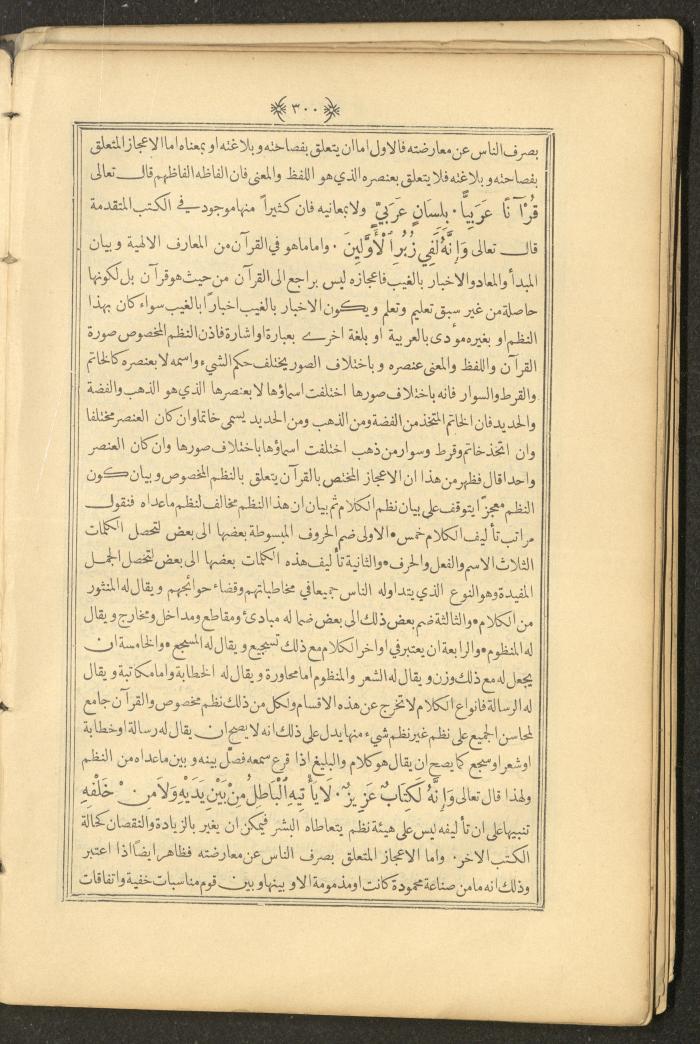 ٣٠٠
بصرف الناس عن معارضته فالاول اما ان يتعلق بفصاحته وبلاغته او بمعناه اما الاعجاز المتعلق
بفصاحته وبلاغته فلا يتعلق بعنصره الذي هو اللفظ والمعنى فان الفاظه الفاظهم قال تعالى
قُرْآنًا عَرَبِيًّا . بِلِسَانٍ عَرَبِيٍّ ولا بمعانيه فان كثيراً منها موجود في الكتب المتقدمة
قال تعالى وَإِنَّهُ لَفِي زُبُرِ الْأَوَّلِينَ . واما ما هو في القرآن من المعارف الالهية وبيان
المبدأ والمعاد والاخبار بالغيب فاعجازه ليس براجع الى القرآن من حيث هو قرآن بل لكونها
حاصلة من غير سبق تعليم وتعلم ويكون الاخبار بالغيب اخباراً بالغيب سواء كان بهذا
النظم او بغيره مؤدى بالعربية او بلغة اخرى بعبارة او اشارة فاذن النظم المخصوص صورة
القرآن واللفظ والمعنى عنصره وباختلاف الصور يختلف حكم الشيء واسمه لا بعنصره كالخاتم
والقرط والسوار فانه باختلاف صورها اختلفت اسماؤها لا بعنصرها الذي هو الذهب والفضة
والحديد فان الخاتم المتخذ من الفضة ومن الذهب ومن الحديد يسمى خاتما وان كان العنصر مختلفا
وان اتخذ خاتم وقرط وسوار من ذهب اختلفت اسماؤها باختلاف صورها وان كان العنصر
واحدا قال فظهر من هذا ان الاعجاز المختص بالقرآن يتعلق بالنظم المخصوص وبيان كون
النظم معجزاً يتوقف على بيان نظم الكلام ثم بيان ان هذا النظم مخالف لنظم ما عداه فنقول
مراتب تأليف الكلام خمس . الاولى ضم الحروف المبسوطة بعضها الى بعض لتحصل الكلمات
الثلاث الاسم والفعل والحرف . والثانية تأليف هذه الكلمات بعضها الى بعض لتحصل الجمل
المفيدة وهو النوع الذي يتداوله الناس جميعا في مخاطباتهم وقضاء حوائجهم ويقال له المنثور
من الكلام . والثالثة ضم بعض ذلك الى بعض ضما له مبادئ ومقاطع ومداخل ومخارج ويقال
له المنظوم . والرابعة ان يعتبر في اواخر الكلام مع ذلك تسجيع ويقال له المسجع . والخامسة ان
يجعل له مع ذلك وزن ويقال له الشعر والمنظوم اما محاورة ويقال له الخطابة واما مكاتبة ويقال
له الرسالة فانواع الكلام لا تخرج عن هذه الاقسام ولكل من ذلك نظم مخصوص والقرآن جامع
لمحاسن الجميع على نظم غير نظم شيء منها يدل على ذلك انه لا يصح ان يقال له رسالة او خطابة
او شعر او سجع كما يصح ان يقال هو كلام والبليغ اذا قرع سمعه فصل بينه وبين ما عداه من النظم
ولهذا قال تعالى وَإِنَّهُ لَكِتَابٌ عَزِيزٌ . لَا يَأْتِيهِ الْبَاطِلُ مِنْ بَيْنِ يَدَيْهِ وَلَا مِنْ خَلْفِهِ
تنبيها على ان تأليفه ليس على هيئة نظم يتعاطاه البشر فيمكن ان يغير بالزيادة والنقصان كحالة
الكتب الاخر . واما الاعجاز المتعلق بصرف الناس عن معارضته فظاهر ايضا اذا اعتبر
وذلك انه ما من صناعة محمودة كانت او مذمومة الا وبينها وبين قوم مناسبات خفية واتفاقات